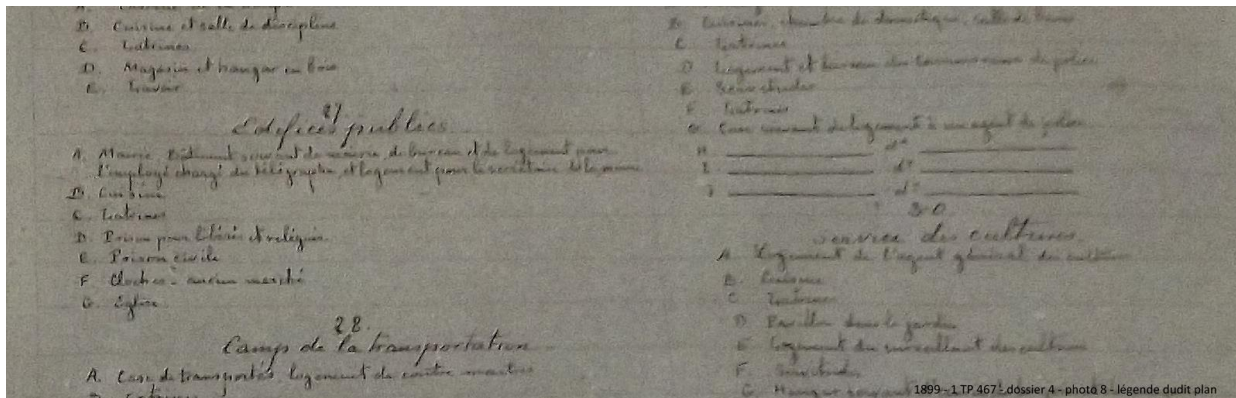 B. Cuisine et salle de discipline
C. Latrines
D. Magasin et hangar en bois
E. Lavoir
27
Edifices publics
A. Mairie. Bâtiment servant de mairie, de bureau et de logement pour
l'employé chargé du télégraphe, et logement pour le secrétaire de la mairie
B. Cuisine
C. Latrines
D. Prison pour libérés et relégués
E. Prison civile
F. Cloches - ancien marché
G. Eglise
28.
Camp de la transportation
A. Case de transportés, logement de contre maîtres
B. chambre de domestique, salle de bains
C. Latrines
D. Logement et bureau du commissaire de police
E.
F. Latrines
G. Case servant de logement à un agent de police
H. d°
I. d°
J. d°
30
service des cultures
A. Logement de l'agent général des cultures
B. Cuisine
C. Latrines
D. Pavillon dans le jardin
E. Logement du surveillant des cultures
F.
G. Hangar servant
1899 - 1 TP 467 - dossier 4 - photo 8 - légende dudit plan